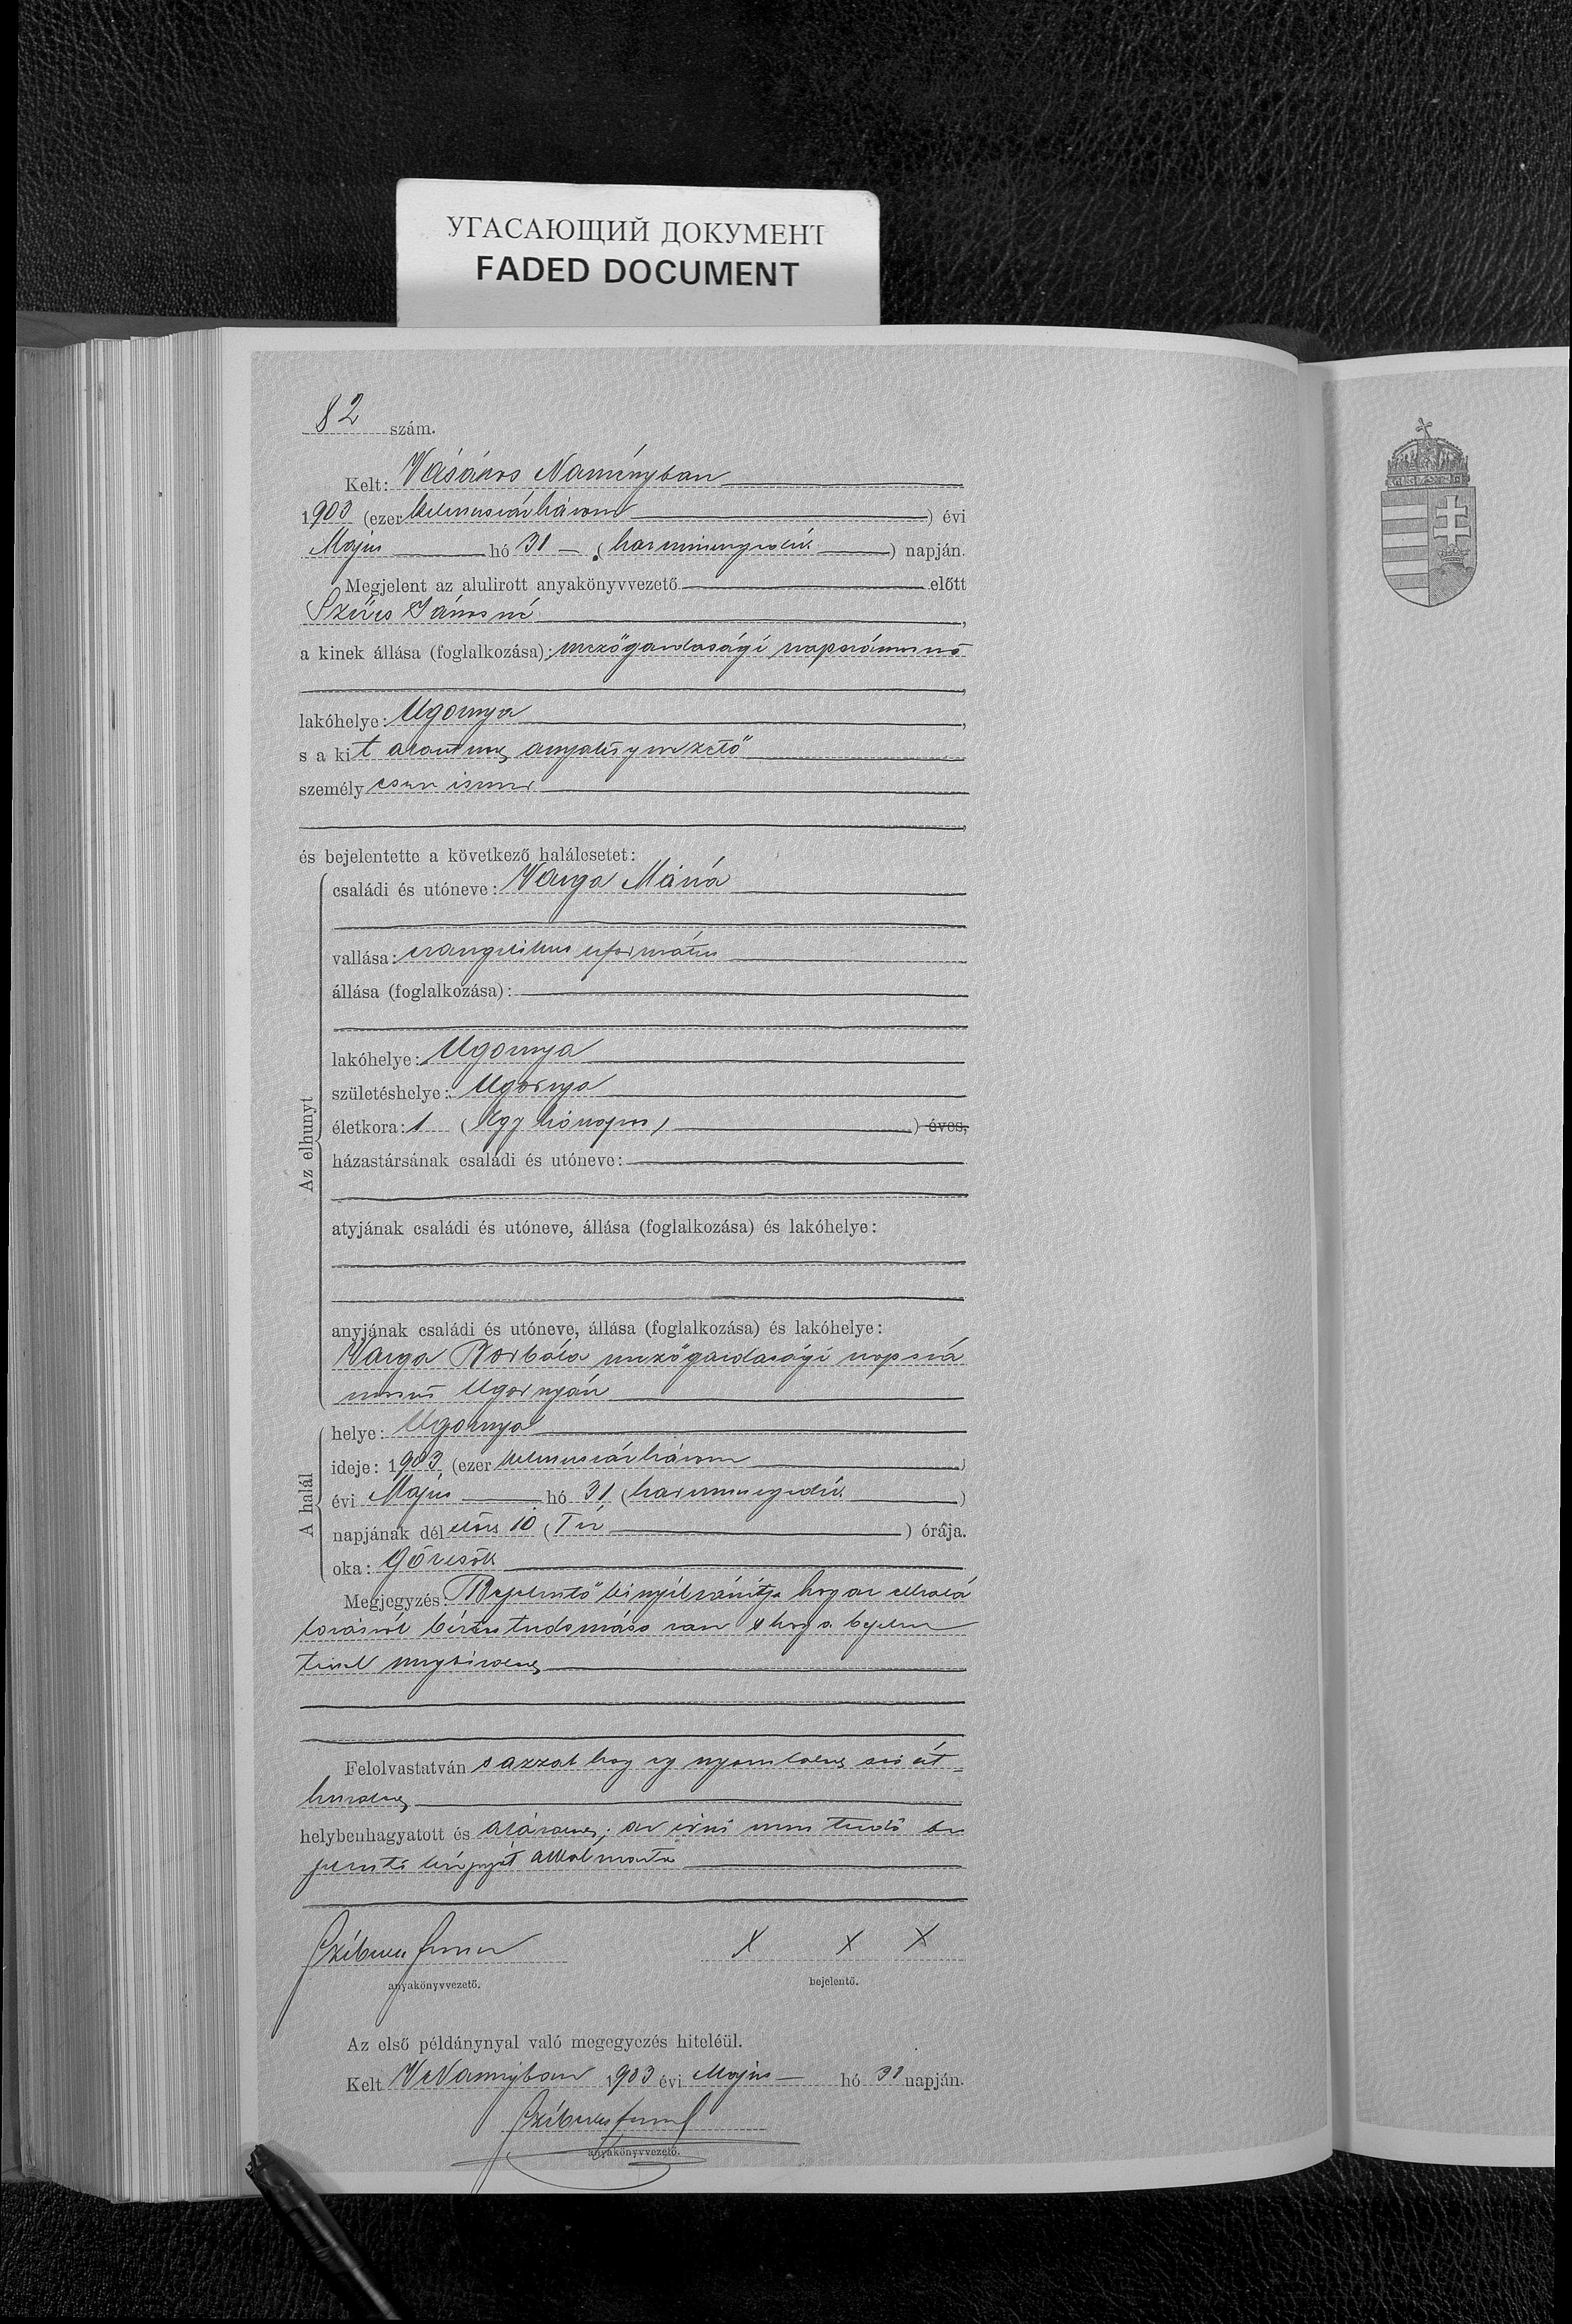 УГАСАЮЩИЙ ДОКУМЕНТ
FADED DOCUMENT
82 szám.
Kelt: Vásáros Naményban
1903 (ezer kilenczszázhárom) évi
Május hó 31 (harminczegyedik) napján.
Megjelent az alulirott anyakönyvvezető előtt
Szűcs Jánosné,
a kinek állása (foglalkozása): mezőgazdasági napszámosnő
lakóhelye: Ugornya,
s a kit alant írt anyakönyvvezető
személyesen ismer
és bejelentette a következő halálesetet:
Az elhunyt
családi és utóneve: Varga Mária
vallása: evangelikus református
állása (foglalkozása):
lakóhelye: Ugornya
születéshelye: Ugornya
életkora: 1 (Egy hónapos) éves,
házastársának családi és utóneve:
atyjának családi és utóneve, állása (foglalkozása) és lakóhelye:
anyjának családi és utóneve, állása (foglalkozása) és lakóhelye:
Varga Borbála mezőgazdasági napszá
mosnő Ugornyán
A halál
helye: Ugornya
ideje: 1903, (ezer kilenczszázhárom)
évi Május hó 31 (harminczegyedik)
napjának délelőtt 10 (Tíz) órája.
oka: Görcsök
Megjegyzés: Bejelentő kinyilvánítja hogy az elhalá
lozásról biztos tudomása van s hogy a bejelen
téssel megbízatott
Felolvastatván s azzal hogy egy nyomtatott szó át
húzatott
helybenhagyatott és aláíratott; az írni nem tudó be
jelentő kézjegyét alkalmazta
anyakönyvvezető.
X X X
bejelentő.
Az első példánynyal való megegyezés hiteléül.
Kelt V Naményban 1903 évi Május hó 31 napján.
anyakönyvvezető.